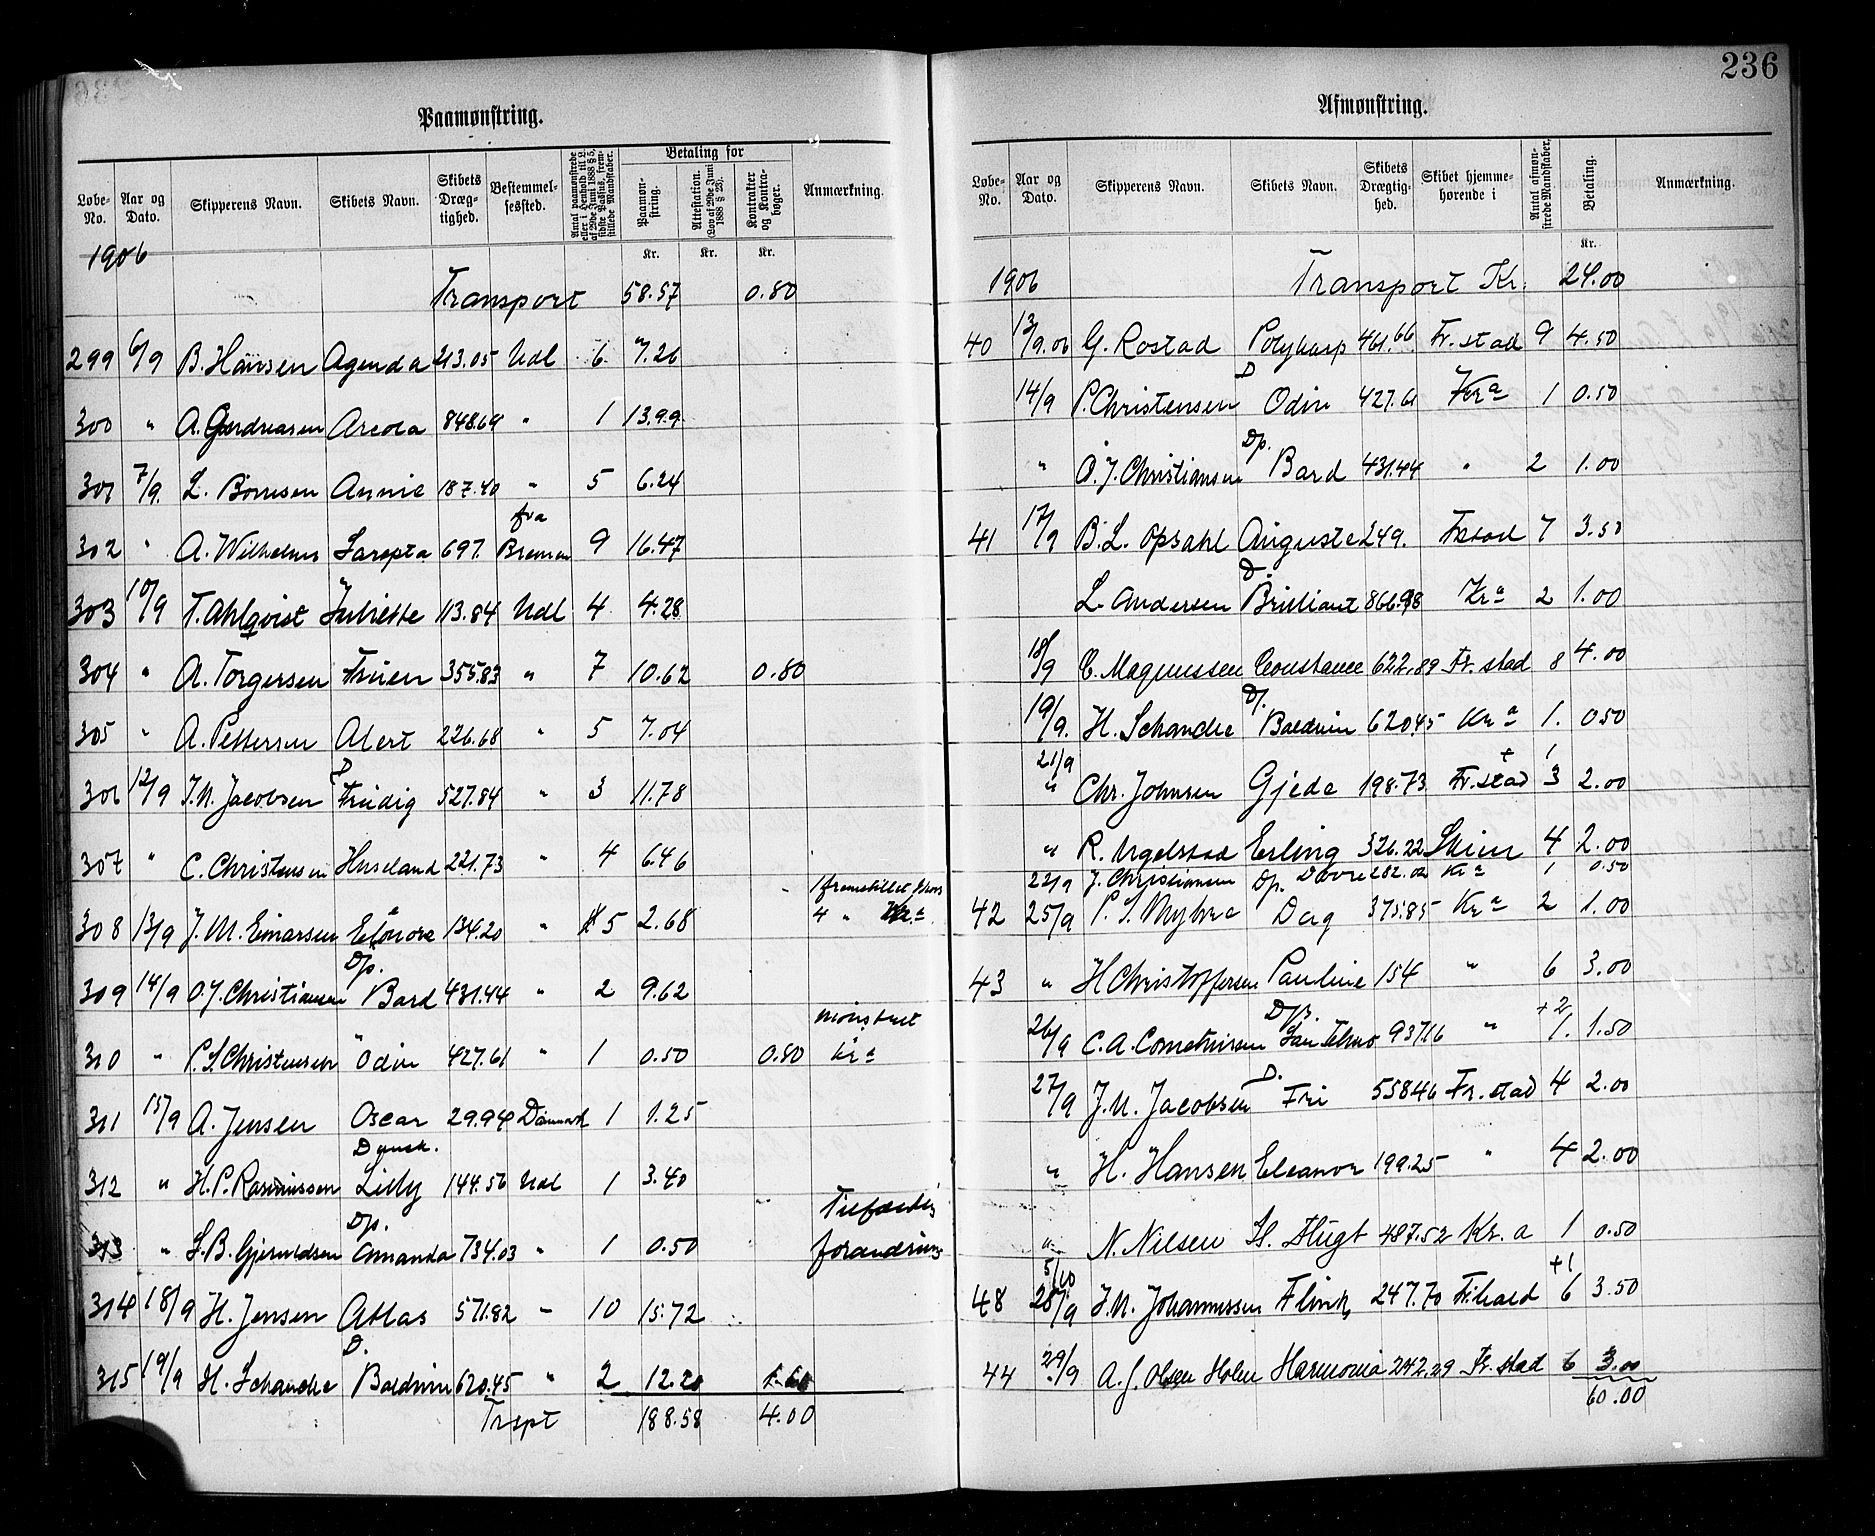 236
Paamønstring.
Løbe-No. Aar og Dato. Skipperens Navn. Skibets Navn. Skibets Dræg-tighed. Bestemmel-sessted. Antal paamønstrede eller i Henhold til L. af 29de Juni 1888 § 5, sidste Passus, frem-stillede Mandskaber. Betaling for Paamøn-string. Attestation. (Lov af 29de Juni 1888 § 23). Kontrakter og Kontra-bøger. Anmærkning.
Kr. Kr. Kr.
1906
Transport 58.57 0.80
299 6/9 B. Hansen Agenda 213.05 Udl 6. 7.26
300 " A. Gundersen Areola 848.69 " 1 13.99
301 7/9. L. Börresen Annie 187.40 " 5 6.24
302 " A. Wilhelms Sarepta 697. fra Bremen 9 16.47
303 10/9 T. Ahlqvist Juliette 113.84 Udl 4 4.28
304 " A. Torgersen Fruen 355.83 " 7 10.62 0.80
305 " A. Pettersen Alert 226.68 " 5 7.04
306 12/9 J. N. Jacobsen D Freidig 527.84 " 3 11.78
307 " C. Christensen Huseland 221.73 " 4 6.46
308 13/9 J. M. Einarsen Elonore 134.20 " 5 2.68 1 fremstillet 4 " Kra
309 14/9 O. J. Christiansen Dp. Bard 431.44 " 2 9.62
310 " P. S. Christensen " Odin 427.61 " 1 0.50 0.80 mönstret Kra
311 15/9 A. Jensen Oscar 29.94 Danmark 1 1.25
312 " H. P. Rasmussen Dansk. Lilly 144.56 Udl 1 3.40
313 " S. B. Gjeruldsen Dp. Amanda 734.03 " 1 0.50 forandring
314 18/9 H. Jensen Atlas 571.82 " 10 15.72
315 19/9 H. Schandie D. Baldwin 620.45 " 2 12.20 1.60
Trspt 188.58 4.00
Afmønstring.
Løbe-No. Aar og Dato. Skipperens Navn. Skibets Navn. Skibets Drægtig-hed. Skibet hjemme-hørende i Antal afmøn-strede Mandskaber. Betaling. Anmærkning.
Kr.
1906 Transport Kr. 24.00
40 13/9.06 G. Rostad Polykarp 461.66. Fr.stad 9 4.50
14/9 P. Christensen D Odin 427.61 Kra 1 0.50
" O. J. Christiansen Dp. Bard 431.44 " 2 1.00
41 17/9 B. L. Opsahl Auguste 249. Fstad 7 3.50
L. Andersen D. Brilliant 866.98 Kra 2 1.00
18/9 C. Magnussen Constance 622.89 Fr. stad 8 4.00
19/9. H. Schandie D/. Baldwin 620.45 Kra 1. 0.50
21/9 " Chr. Johnsen Gjeda 198.73. Fr. stad + 1 3 2.00
" R. Ugelstad Erling 326.22 Skien 4 2.00
22/9 J. Christiansen Dp. Dovre 282.02 Kra 1 0.50
42 25/9 P. S. Myhre Dag 375.85 Kra 2 1.00
43 " H Christoffersen Pauline 154 " 6 3.00
26/9 C. A. Corneliusen D/s. San Telmo 937.16 " +2 1. 1.50
27/9 J. N. Jacobsen D. Fri 558.46 Fr. stad 4 2.00
" H. Hansen Eleanor 199.25 " 4 2.00
" N. Nilsen 487.52 Kr. a 1 0.50
48 5/10 28/9 J. N. Johannessen Flink 247.70 F.hald +1 6 3.50
44 29/9 A. J. Olsen Holm Harmonia 242.29 Fr. stad 6 3.00
60.00